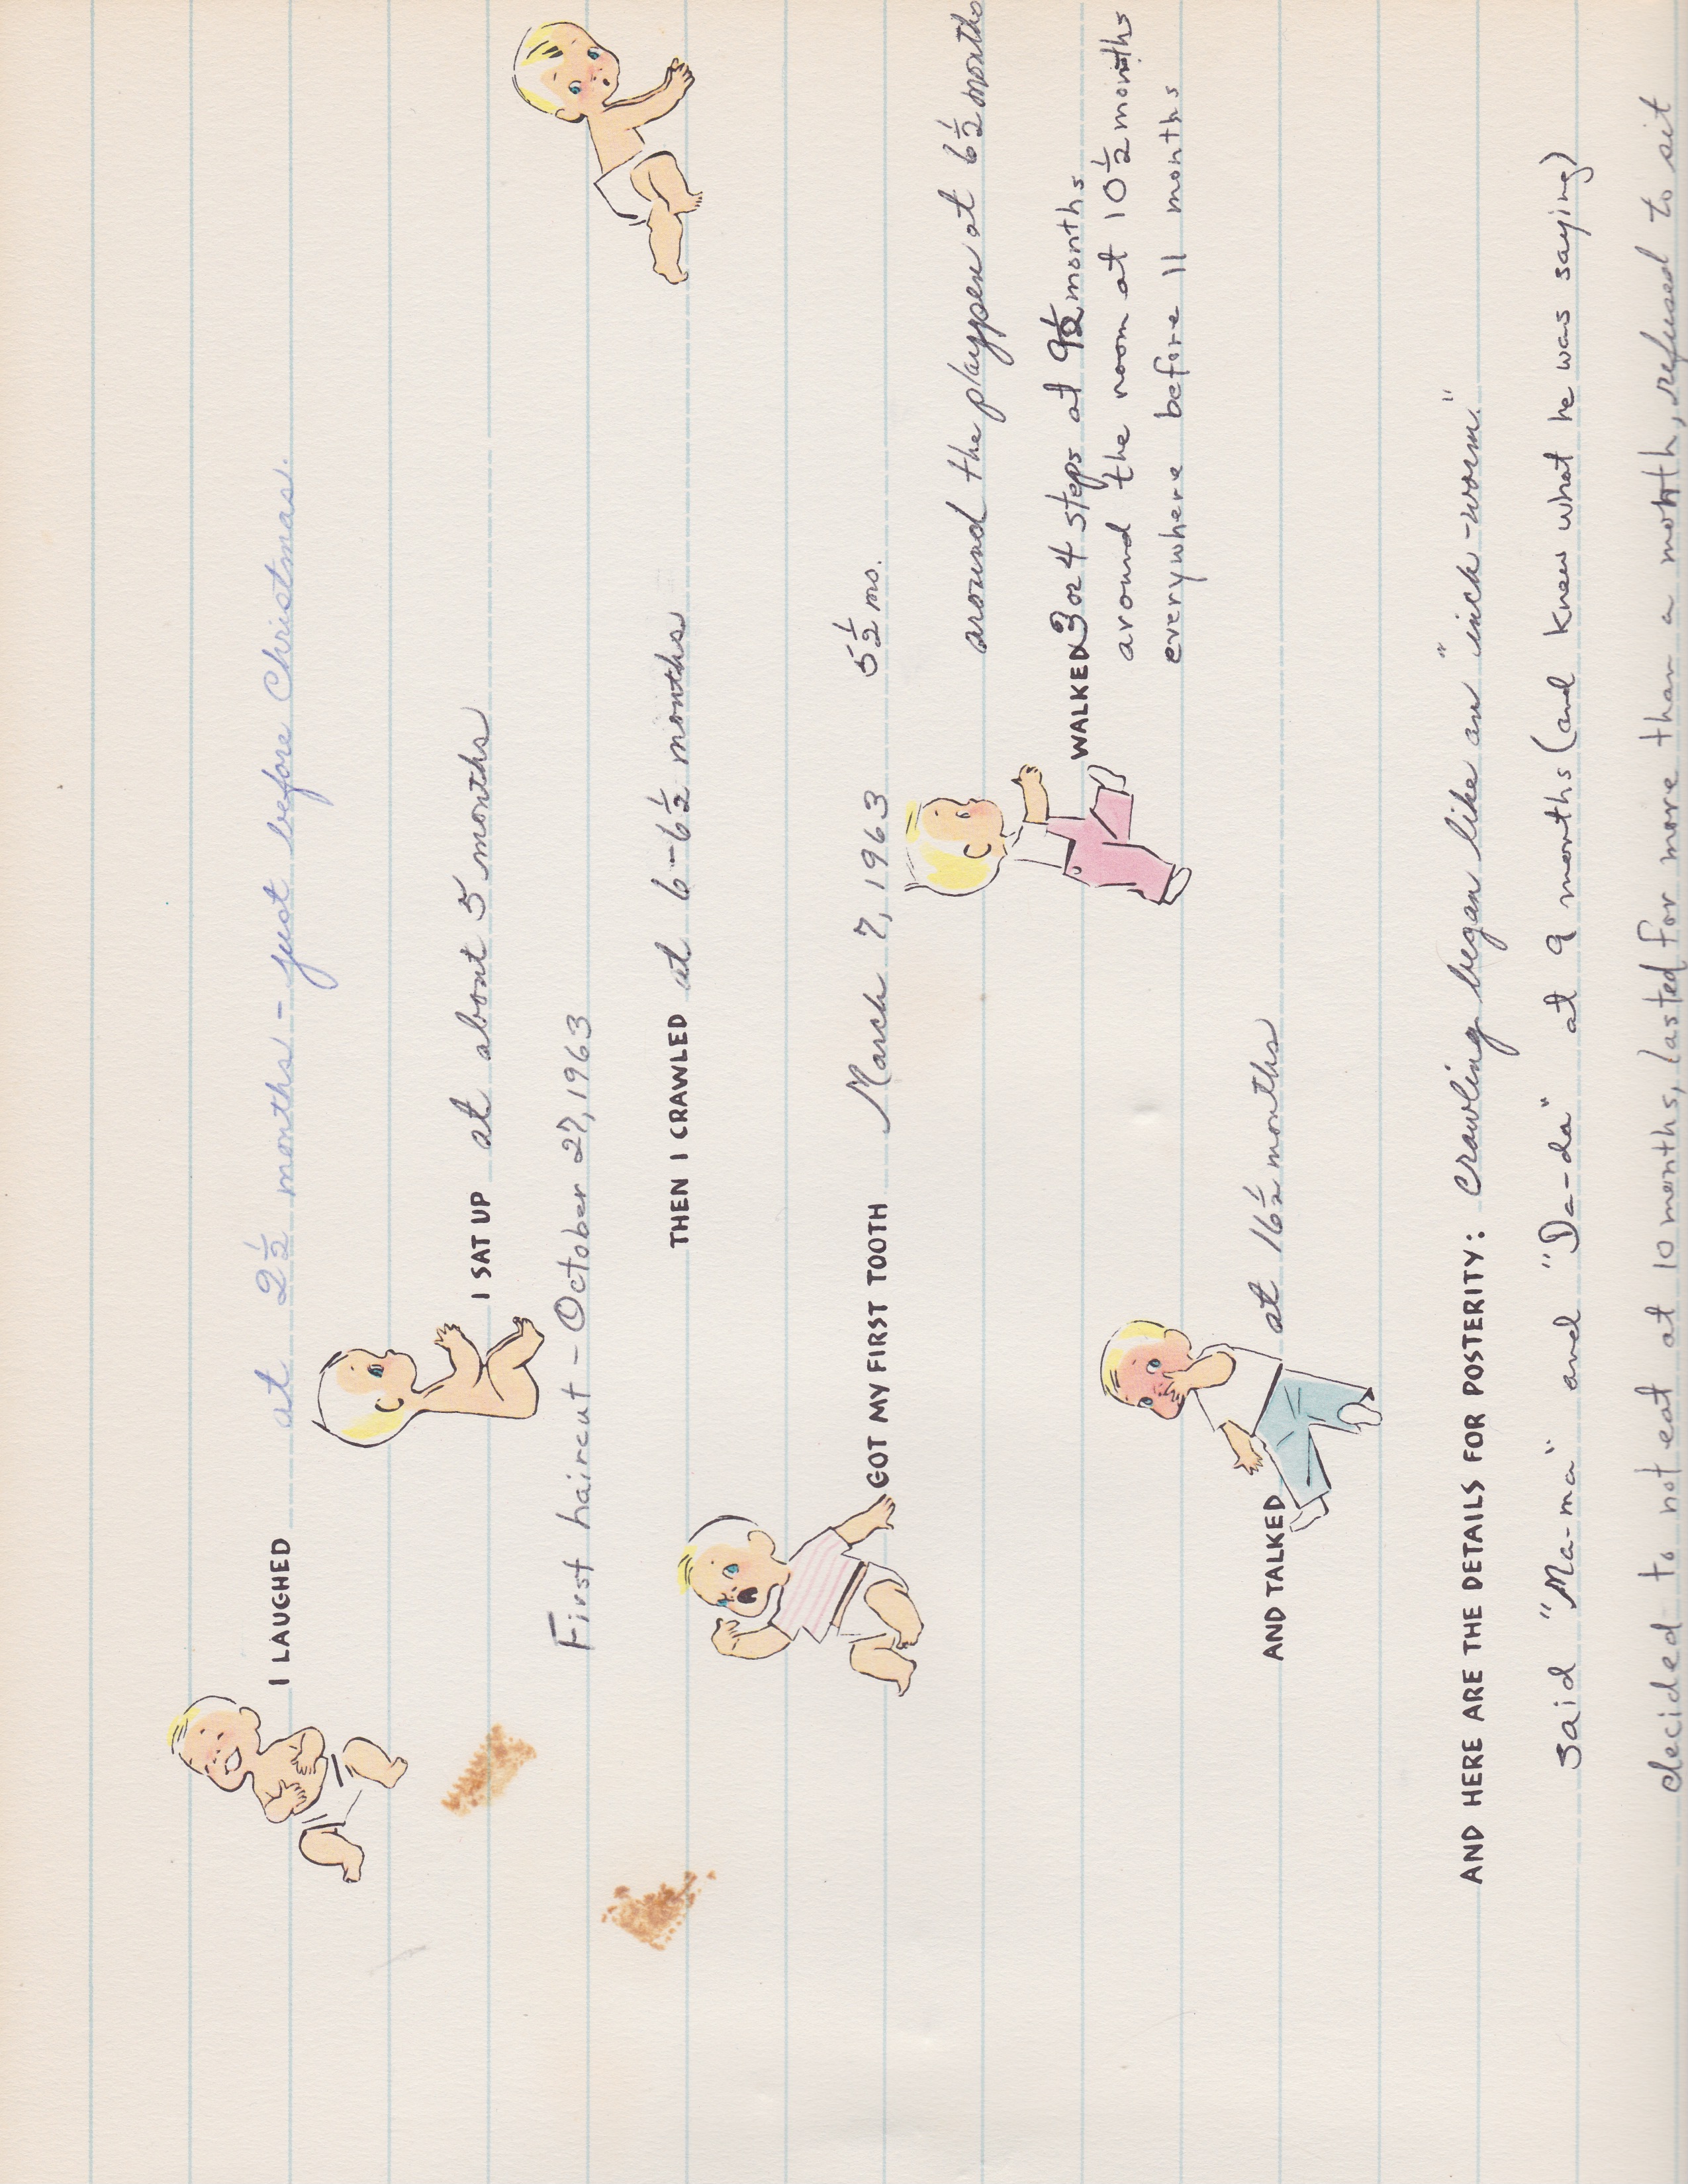 I LAUGHED at 2½ months - just before Christmas.
I SAT UP at about 5 months
First haircut - October 27, 1963
THEN I CRAWLED at 6-6½ months
GOT MY FIRST TOOTH March 7, 1963 5½ mo.
around the playpen at 6½ months
WALKED 3 or 4 steps at 9½ months
around the room at 10½ months
everywhere before 11 months
AND TALKED at 16½ months
AND HERE ARE THE DETAILS FOR POSTERITY: Crawling began like an "inch-worm."
said "Ma-ma" and "Da-da" at 9 months (and knew what he was saying)
decided to not eat at 10 months, lasted for more than a month, refused to sit